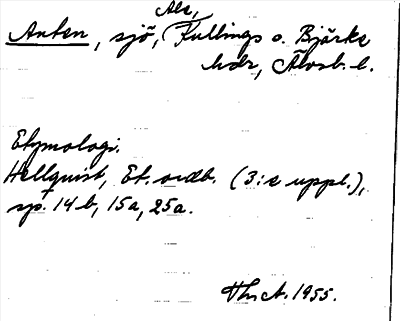 Ale,
Anten, sjö, Kullings o. Bjärke
hdr, Älvsb. l.
Etymologi.
Hellquist, Et. ordb. (3:e uppl.),
sp. 14 b, 15a, 25a.
1955.